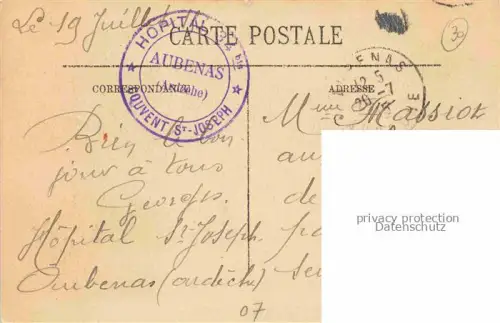 Le 19 Juillet
CARTE POSTALE
30
HOPITAL 34 bis
AUBENAS
(Ardèche)
COUVENT ST-JOSEPH
CORRESPONDANCE
ADRESSE
ENAS
12 5
20 -7
Mme Massiot
Bien le bon
jour à tous
Georges.
Hôpital St Joseph
Aubenas (ardèche)
au
de
07
privacy protection
Datenschutz